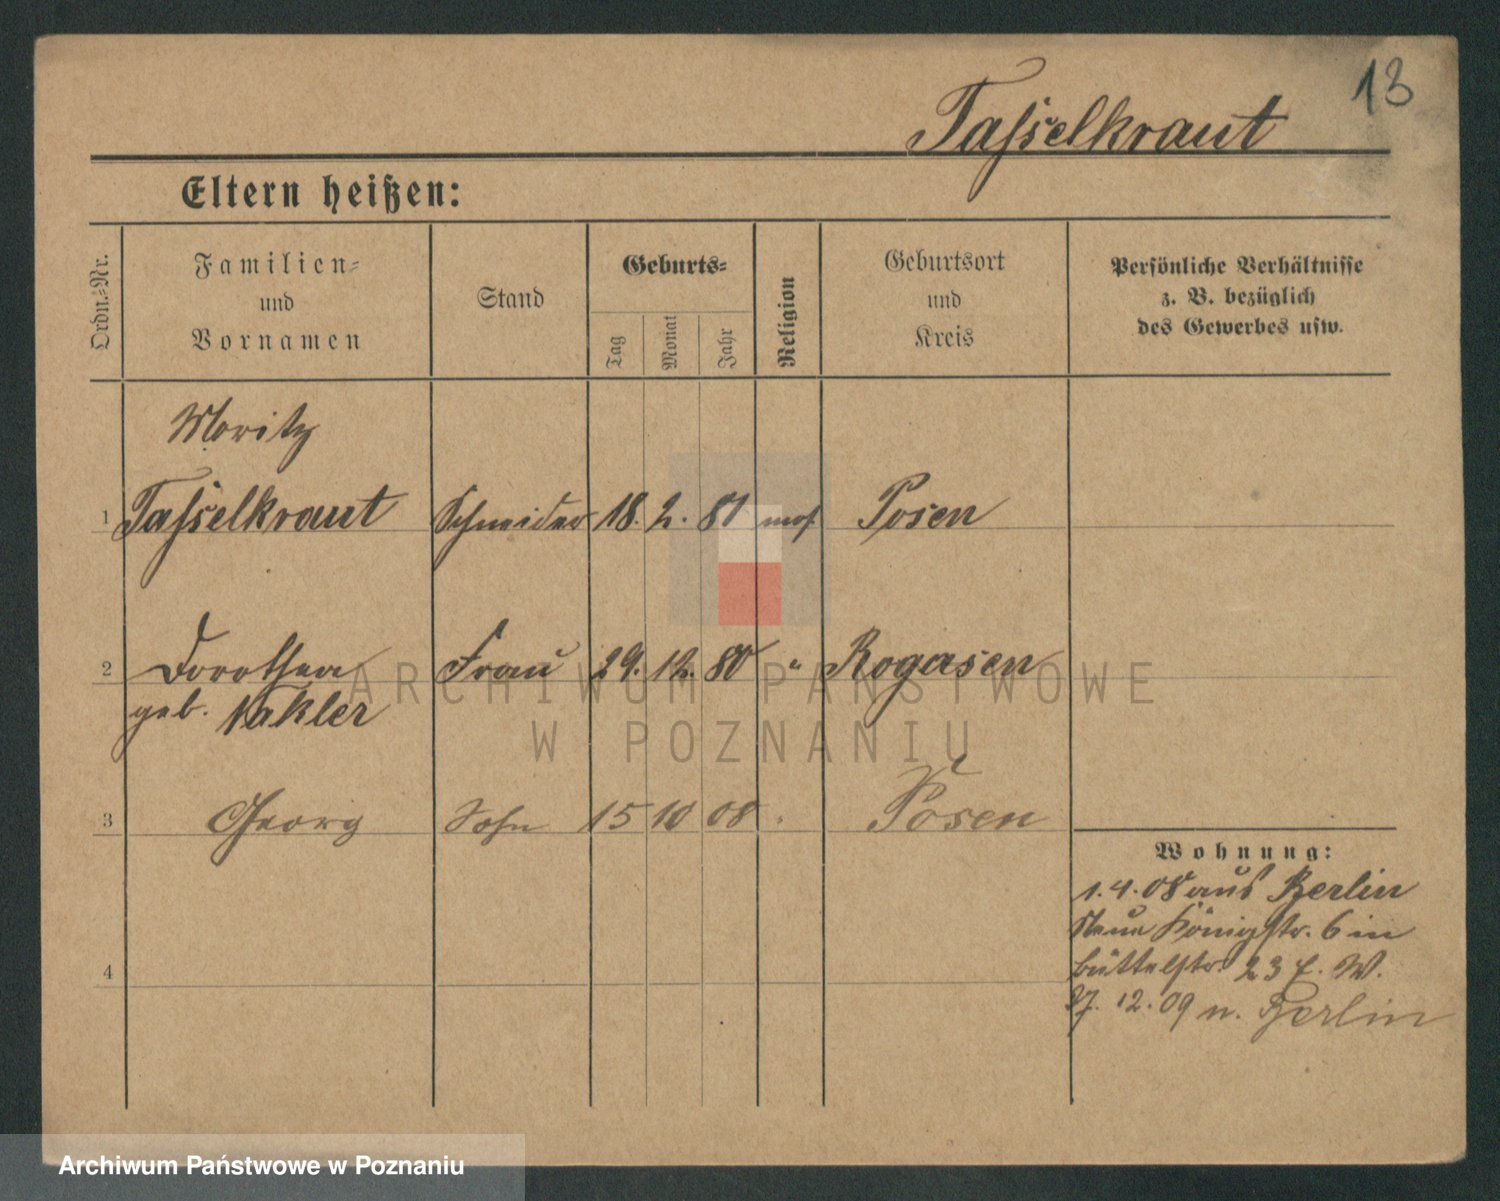 13
Tasselkraut
Eltern heißen:
Ordn.-Nr.
Familien-
und
Vornamen
Stand
Geburts-
Tag
Monat
Jahr
Religion
Geburtsort
und
Kreis
Persönliche Verhältnisse
z. B. bezüglich
des Gewerbes usw.
Moritz
1 Tasselkraut Schneider 18. 2. 81 mos. Posen
2 Dorothea Frau 29. 12. 80 " Rogasen
geb. Wakler
3 Georg Sohn 15 10 08 " Posen
4
Wohnung:
1.4.08 aus Berlin
Neue Königstr. 6 in
Büttelstr. 23 W.
27. 12. 09 n. Berlin
ARCHIWUM PAŃSTWOWE
W POZNANIU
Archiwum Państwowe w Poznaniu